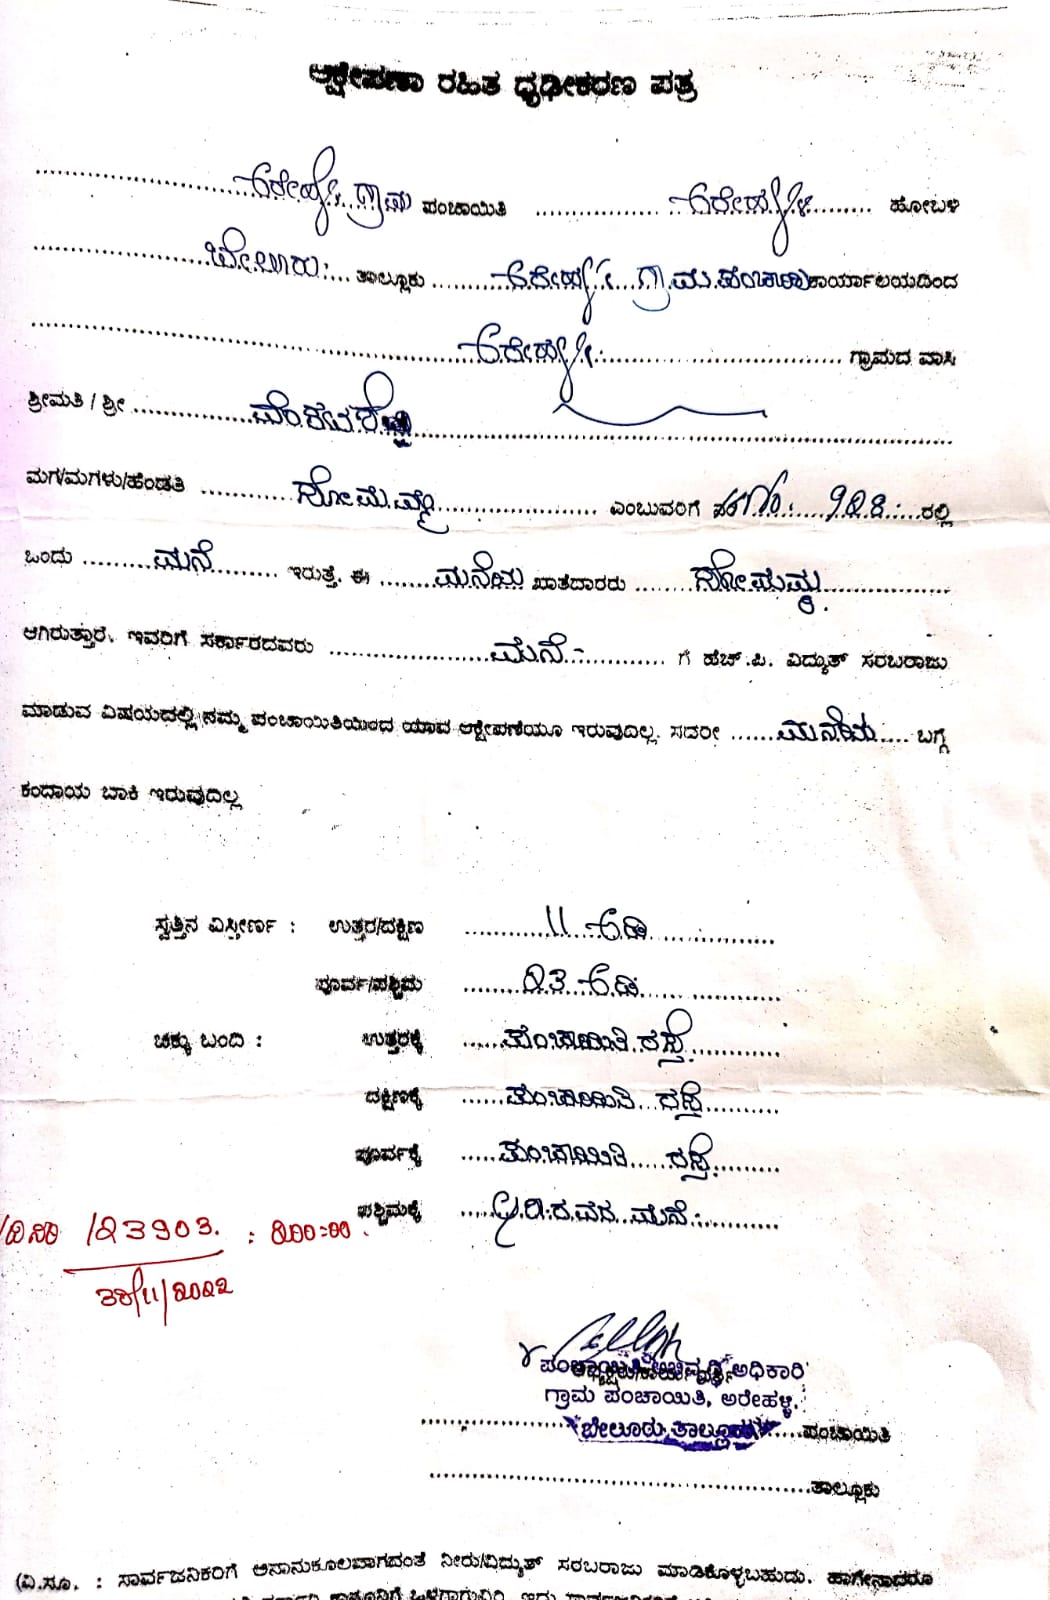 ಆಕ್ಷೇಪಣಾ ರಹಿತ ಧೃಢೀಕರಣ ಪತ್ರ
ಅರೇಹಳ್ಳಿ ಗ್ರಾಮ ಪಂಚಾಯಿತಿ ಅರೇಹಳ್ಳಿ ಹೋಬಳಿ
ಬೇಲೂರು ತಾಲ್ಲೂಕು ಅರೇಹಳ್ಳಿ ಗ್ರಾಮ ಪಂಚಾಯಿತಿ ಕಾರ್ಯಾಲಯದಿಂದ
ಅರೇಹಳ್ಳಿ ಗ್ರಾಮದ ವಾಸಿ
ಶ್ರೀಮತಿ / ಶ್ರೀ ವೆಂಕಟಶೆಟ್ಟಿ
ಮಗ/ಮಗಳು/ಹೆಂಡತಿ ಸೋಮಮ್ಮ ಎಂಬುವರಿಗೆ 928 ರಲ್ಲಿ
ಒಂದು ಮನೆ ಇರುತ್ತೆ. ಈ ಮನೆಯ ಖಾತೆದಾರರು ಸೋಮಮ್ಮ
ಆಗಿರುತ್ತಾರೆ. ಇವರಿಗೆ ಸರ್ಕಾರದವರು ಮನೆ ಗೆ ಹೆಚ್.ಪಿ. ವಿದ್ಯುತ್ ಸರಬರಾಜು
ಮಾಡುವ ವಿಷಯದಲ್ಲಿ ನಮ್ಮ ಪಂಚಾಯಿತಿಯಿಂದ ಯಾವ ಆಕ್ಷೇಪಣೆಯೂ ಇರುವುದಿಲ್ಲ. ಸದರೀ ಮನೆಯ ಬಗ್ಗೆ
ಕಂದಾಯ ಬಾಕಿ ಇರುವುದಿಲ್ಲ
ಸ್ವತ್ತಿನ ವಿಸ್ತೀರ್ಣ : ಉತ್ತರ/ದಕ್ಷಿಣ 11 ಅಡಿ
ಪೂರ್ವ/ಪಶ್ಚಿಮ 23 ಅಡಿ
ಚಕ್ಕು ಬಂದಿ : ಉತ್ತರಕ್ಕೆ ಪಂಚಾಯಿತಿ ರಸ್ತೆ
ದಕ್ಷಿಣಕ್ಕೆ ಪಂಚಾಯಿತಿ ರಸ್ತೆ
ಪೂರ್ವಕ್ಕೆ ಪಂಚಾಯಿತಿ ರಸ್ತೆ
ಪಶ್ಚಿಮಕ್ಕೆ ರವರ ಮನೆ
/23903.
/11/2022
ಪಂಚಾಯಿತಿ ಅಭಿವೃದ್ಧಿ ಅಧಿಕಾರಿ
ಗ್ರಾಮ ಪಂಚಾಯಿತಿ, ಅರೇಹಳ್ಳಿ.
ಬೇಲೂರು ತಾಲ್ಲೂಕು ಪಂಚಾಯಿತಿ
ತಾಲ್ಲೂಕು
(ವಿ.ಸೂ. : ಸಾರ್ವಜನಿಕರಿಗೆ ಅನಾನುಕೂಲವಾಗದಂತೆ ನೀರು/ವಿದ್ಯುತ್ ಸರಬರಾಜು ಮಾಡಿಕೊಳ್ಳಬಹುದು. ಹಾಗೇನಾದರೂ